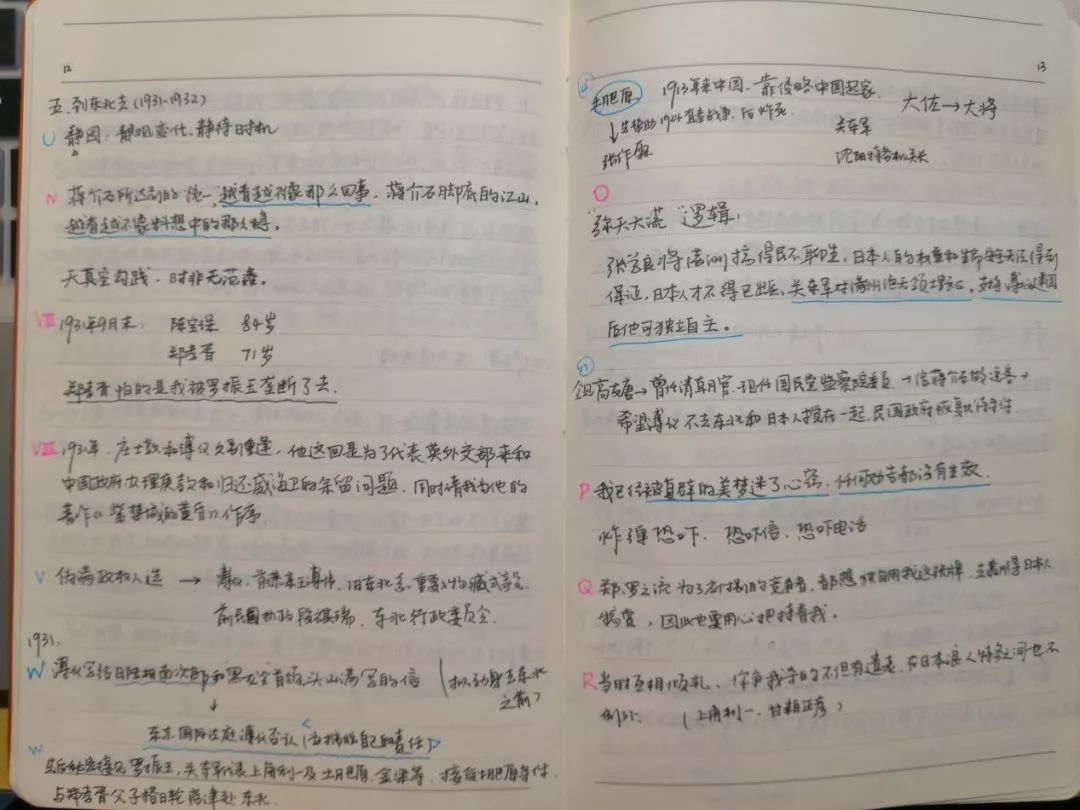 12
五. 到东北去 (1931-1932)
U 静园: 静观变化、静待时机
N 蒋介石所达到的“统一”, 越看越不像那么回事, 蒋介石脚底的江山,
越看越不像料想中的那么稳。
天莫空勾践, 时非无范蠡。
VII 1931年9月末: 陈宝琛 84岁
郑孝胥 71岁
郑孝胥怕的是我被罗振玉垄断了去.
VIII 1931年. 庄士敦和溥仪久别重逢, 他这回是为了代表英外交部来和
中国政府办理庚款和归还威海卫的余留问题. 同时请我为他的
著作《紫禁城的黄昏》作序.
V 伪满政权人选 → 溥仪、前恭亲王溥伟、旧东北系重要人物臧式毅、
前民国执政段祺瑞、东北行政委员会.
1931.
W 溥仪写给日陆相南次郎和“黑龙会”首领头山满写的信 (拟动身去东北
之前)
↓
东京国际法庭溥仪否认 (为摆脱自己的责任)
W
先后秘密接见罗振玉, 关东军代表上角利一及土肥原、金梁等. 接受土肥原条件.
与郑孝胥父子搭日轮离津赴东北.
13
土肥原 1913年来中国. 靠侵略中国起家. 大佐→大将
↓ 先帮助1924直奉战争, 后炸死 关东军
张作霖 沈阳特务机关长
O
“弥天大谎”逻辑:
张学良将满洲搞得民不聊生, 日本人的权益和生命安全无法得到
保证, 日本人才不得已出兵. 关东军对满州绝无领土野心. 支持溥仪建国
后他可独立自主。
高友唐→曾任清朝官. 现任国民党监察院委员 →信蒋介石
希望溥仪不去东北和日本人搅在一起, 民国政府恢复优待条件.
P 我已经被复辟的美梦迷了心窍, 任何劝告都没有生效.
炸弹恐吓、恐吓信、恐吓电话
Q 郑、罗之流为了的竞争者, 都想独自用我这张牌, 得日本人
犒赏, 因此也要用心把持着我。
R 当时互相倾轧、你争我夺的不但有遗老, 在日本浪人特务之间也不
例外. (上角利一、甘粕正彦)